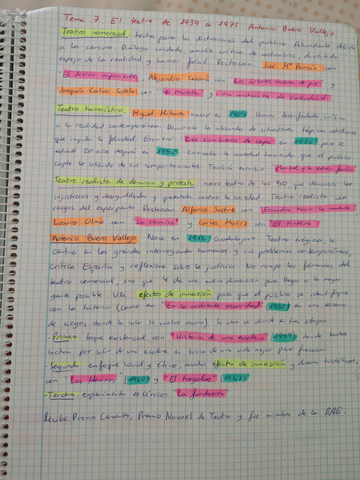 Tema 7 El teatro de 1939 a 1975 Antonio Buero Vallejo
Teatro comercial: hecho para la distracción del público. Actuando debido
a la censura. Diálogo cuidado, amable crítica de costumbres, divertido
espejo de la realidad y humor fácil. Destacan José Mª Pemán con
"El divino impaciente", Alejandro Casona con "La sirena varada" y
Joaquín Calvo Sotelo con "La muralla" y "Una muchachita de Valladolid"
Teatro humorístico: Miguel Mihura nace en 190 Humor disparatado, crítica
a la realidad contemporánea. Denuncia lo absurdo de situaciones típicas cotidianas
que impiden la felicidad. Escribió "Tres sombreros de copa" en 1932 pero lo
estrenó 20 años después en 1952 la sociedad haciendo que el público
capte lo absurdo de sus comportamientos. También escribió
Teatro realista de denuncia y protesta: nuevo teatro de los 50 que denuncia las
injusticias y desigualdades y protesta contra la sociedad. Teatro realista con
rasgos del esperpento. Destacan Alfonso Sastre con "Escuadra hacia la muerte"
Lauro Olmo con "La camisa" y Carlos Muñiz con "El tintero"
Antonio Buero Vallejo Nace en 1916 Guadalajara Teatro trágico, se
centra en los grandes interrogantes humanos y sus problemas contemporáneos,
critica España y reflexiona sobre la justicia. No rompe las fórmulas del
teatro comercial, sino que le da una nueva dimensión para llegar a la mayor
gente posible. Usa efectos de inmersión para que el público se identifique
con la historia (como en "En la ardiente oscuridad" 1950 en una escena
de ciegos, donde la sala se vuelve oscura). Su obra se divide en tres etapas
-Primera: toque existencial con "Historia de una escalera" (1949) donde todos
luchan por salir de una escalera en busca de una vida mejor pero fracasan
-Segunda: enfoque social y ético, muchos efectos de inmersión y drama histórico,
con "Las Meninas" (1960) y "El tragaluz" (1967)
-Tercera: experimentos escénicos "La fundación"
Recibe Premio Cervantes, Premio Nacional de Teatro y fue miembro de la RAE.